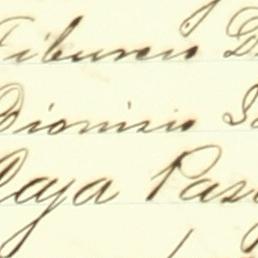 Tiburcio
Dionisio
Caya Pas